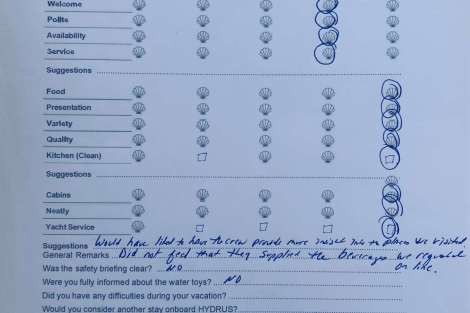 Welcome
Polits
Availability
Service
Suggestions
Food
Presentation
Variety
Quality
Kitchen (Clean)
Suggestions
Cabins
Neatly
Yacht Service
Suggestions Would have liked to have crew provide more insight into the places we visited
General Remarks Did not feel that they supplied the beverages we requested
on line.
Was the safety briefing clear? NO
Were you fully informed about the water toys? NO
Did you have any difficulties during your vacation?
Would you consider another stay onboard HYDRUS?